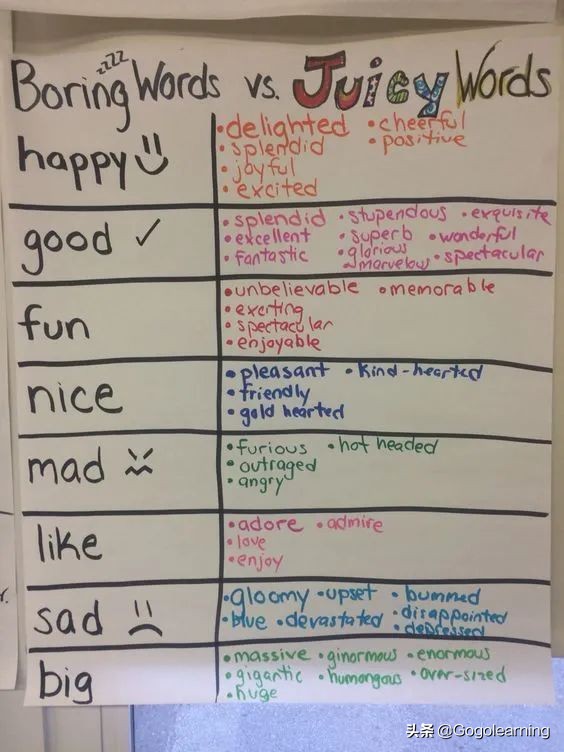 zzzz
Boring Words vs. Juicy Words
happy
• delighted • cheerful
• splendid • positive
• joyful
• excited
good ✓
• splendid • stupendous • exquisite
• excellent • superb • wonderful
• fantastic • glorious • spectacular
• marvelous
fun
• unbelievable • memorable
• exciting
• spectacular
• enjoyable
nice
• pleasant • kind-hearted
• friendly
• gold hearted
mad
• furious • hot headed
• outraged
• angry
like
• adore • admire
• love
• enjoy
sad
• gloomy • upset • bummed
• blue • devastated • disappointed
• depressed
big
• massive • ginormous • enormous
• gigantic • humongous • over-sized
• huge
头条 @Gogolearning